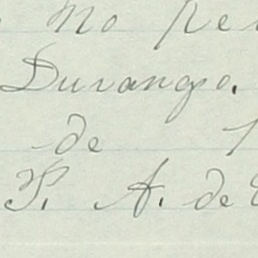 No Re
Durango.
de
P. A. de